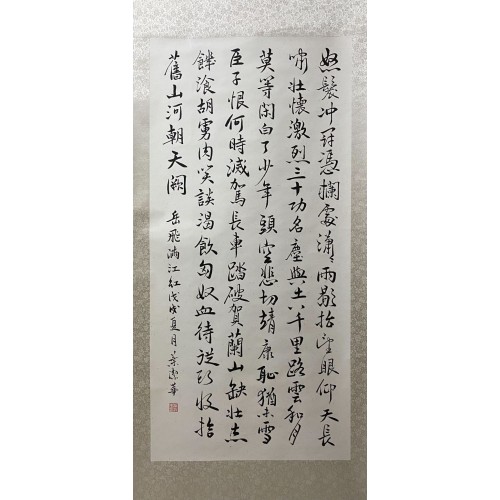 怒髮冲冠憑欄處瀟々雨歇抬望眼仰天長
嘯壯懷激烈三十功名塵與土八千里路雲和月
莫等閑白了少年頭空悲切靖康恥猶未雪
臣子恨何時滅駕長車踏破賀蘭山缺壯志
饑湌胡虜肉笑談渴飲匈奴血待從頭收拾
舊山河朝天闕 岳飛滿江紅戊戌夏月